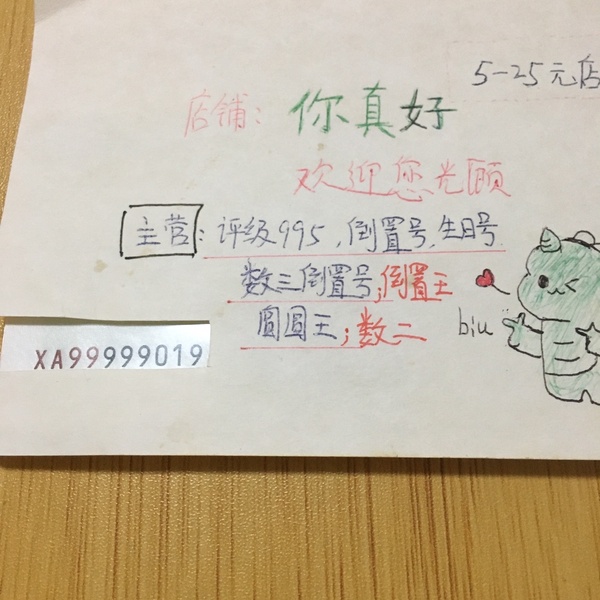 5-25元店
店铺: 你真好
欢迎您光顾
主营: 评级995,倒置号,生日号
数三倒置号;倒置王
圆圆王;数二
biu
XA99999019